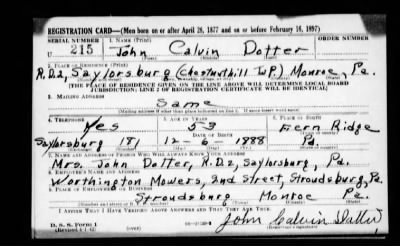 REGISTRATION CARD—(Men born on or after April 28, 1877 and on or before February 16, 1897)
SERIAL NUMBER 1. NAME (Print) ORDER NUMBER
215 John Calvin Dotter
2. PLACE OF RESIDENCE (Print)
R.D.2, Saylorsburg (Chestnuthill TWP.) Monroe, Pa.
[THE PLACE OF RESIDENCE GIVEN ON THE LINE ABOVE WILL DETERMINE LOCAL BOARD
JURISDICTION; LINE 2 OF REGISTRATION CERTIFICATE WILL BE IDENTICAL]
3. MAILING ADDRESS
Same
4. TELEPHONE 5. AGE IN YEARS 6. PLACE OF BIRTH
Yes 53 Fern Ridge
DATE OF BIRTH
Saylorsburg 181 12-6-1888 Pa.
7. NAME AND ADDRESS OF PERSON WHO WILL ALWAYS KNOW YOUR ADDRESS
Mrs. John Dotter, R.D.2, Saylorsburg, Pa.
8. EMPLOYER'S NAME AND ADDRESS
Worthington Mowers, 2nd Street, Stroudsburg, Pa.
9. PLACE OF EMPLOYMENT OR BUSINESS
Stroudsburg Monroe Pa.
I AFFIRM THAT I HAVE VERIFIED ABOVE ANSWERS AND THAT THEY ARE TRUE.
D. S. S. Form 1
John Calvin Dotter